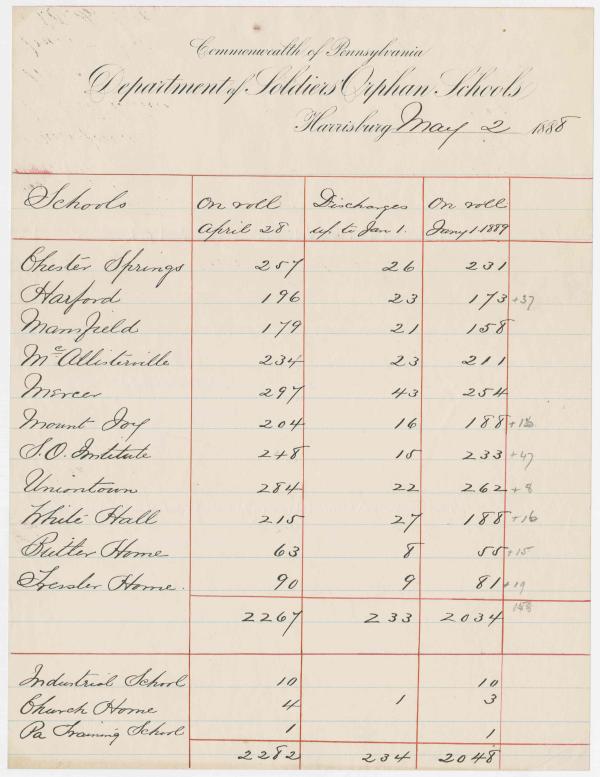 Commonwealth of Pennsylvania
Department of Soldiers' Orphan Schools
Harrisburg May 2 1888
Schools On roll April 28 Discharges up to Jan 1. On roll Jany 1. 1889
Chester Springs 257 26 231
Harford 196 23 173 +37
Mansfield 179 21 158
McAllisterville 234 23 211
Mercer 297 43 254
Mount Joy 204 16 188
S.O. Institute 248 15 233 +47
Uniontown 284 22 262 +8
White Hall 215 27 188 +16
Butler Home 63 8 55 +15
Tressler Home. 90 9 81 +19
158
2267 233 2034
Industrial School 10 10
Church Home 4 1 3
Pa Training School 1 1
2282 234 2048